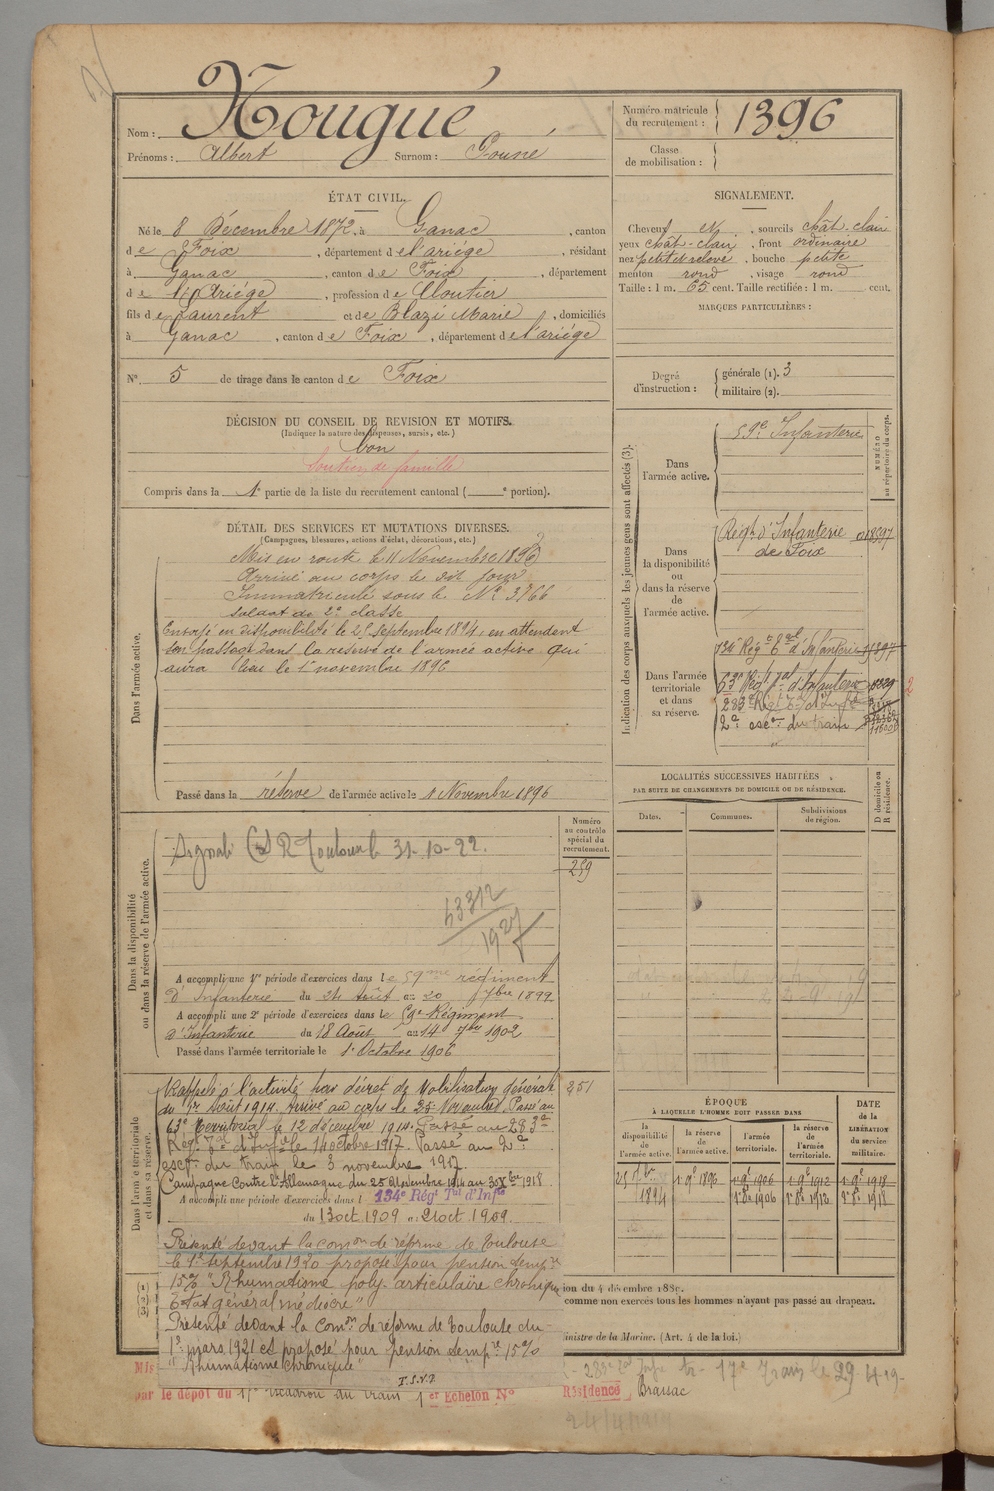 Nom : Nougué
Prénoms : Albert Surnom : Pouné
Numéro matricule du recrutement : 1396
Classe de mobilisation :
ÉTAT CIVIL.
Né le 8 Décembre 1872, à Ganac, canton
de Foix, département de l'ariége, résidant
à Ganac, canton de Foix, département
de l'Ariége, profession de Cloutier
fils de Laurent et de Blazi Marie, domiciliés
à Ganac, canton de Foix, département de l'ariége
N° 5 de tirage dans le canton de Foix
SIGNALEMENT.
Cheveux, sourcils chât-clair
yeux chât-clair, front ordinaire
nez petit et relevé, bouche petite
menton rond, visage rond
Taille : 1 m. 65 cent. Taille rectifiée : 1 m. cent.
MARQUES PARTICULIÈRES :
Degré d'instruction : générale (1). 3
militaire (2).
DÉCISION DU CONSEIL DE REVISION ET MOTIFS.
(Indiquer la nature des dispenses, sursis, etc.)
bon
Soutien de famille
Compris dans la 1e partie de la liste du recrutement cantonal ( e portion).
DÉTAIL DES SERVICES ET MUTATIONS DIVERSES.
(Campagnes, blessures, actions d'éclat, décorations, etc.)
Dans l'armée active.
Mis en route le 11 Novembre 1893
Arrivé au corps le dit jour
Immatriculé sous le N° 3766
soldat de 2e classe
Envoyé en disponibilité le 25 septembre 1894, en attendant
son passage dans la réserve de l'armée active qui
aura lieu le 1er novembre 1896
Passé dans la réserve de l'armée active le 1 Novembre 1896
Indication des corps auxquels les jeunes gens sont affectés (3).
NUMÉRO au répertoire du corps.
Dans l'armée active.
59e Infanterie
Dans la disponibilité ou dans la réserve de l'armée active.
Régt d'Infanterie de Foix 018397
Dans l'armée territoriale et dans sa réserve.
134e Régt tal d'Infanterie
63e Régt tal d'Infanterie
283e Régt tal d'Infie
2e escon du train
2
LOCALITÉS SUCCESSIVES HABITÉES
PAR SUITE DE CHANGEMENTS DE DOMICILE OU DE RÉSIDENCE.
Dates. Communes. Subdivisions de région. D domicile ou R résidence.
Dans la disponibilité ou dans la réserve de l'armée active.
Numéro au contrôle spécial du recrutement.
259
Signalé CSR Toulouse 31-10-22.
43312
1927
A accompli une 1re période d'exercices dans le 59me régiment
d'Infanterie du 24 Août au 20 7bre 1899
A accompli une 2e période d'exercices dans le 59e Régiment
d'Infanterie du 18 Août au 14 7bre 1902
Passé dans l'armée territoriale le 1er Octobre 1906
Dans l'armée territoriale et dans sa réserve.
251
Rappelé à l'activité par décret de Mobilisation générale
du 1er Août 1914. Arrivé au corps le 25 Novembre. Passé au
63e Territorial le 12 décembre 1914. Passé au 283e
Régt tal d'Infie le 14 octobre 1917. Passé au 2e
escon du train le 3 novembre 1917
Campagne Contre l'Allemagne du 25 Novembre 1914 au 30 Xbre 1918
A accompli une période d'exercices dans l 134e Régt Tal d'Infie
du 13 oct 1909 au 21 oct 1909.
Présenté devant la comon de réforme de Toulouse
le 1er septembre 1920 proposé pour pension tempre
15% "Rhumatisme poly-articulaire chronique
Etat général médiocre"
Présenté devant la comon de réforme de Toulouse du
1er mars 1921 et proposé pour pension tempre 15%
"Rhumatisme chronique"
T.S.V.P.
ÉPOQUE
À LAQUELLE L'HOMME DOIT PASSER DANS
la disponibilité de l'armée active. la réserve de l'armée active. l'armée territoriale. la réserve de l'armée territoriale.
DATE de la LIBÉRATION du service militaire.
25 7bre 1894 1er 9e 1896 1er 9e 1906 1er 9e 1912 1er 9e 1918
1er 8e 1906 1er 8e 1912 1er 8e 1918
(1)
(2)
(3)
ion du 4 décembre 1889.
comme non exercés tous les hommes n'ayant pas passé au drapeau.
inistre de la Marine. (Art. 4 de la loi.)
Mis
par le dépôt du 17e Escadron du train 1er Echelon N°
Résidence Brassac
17e Train le 29-4-19